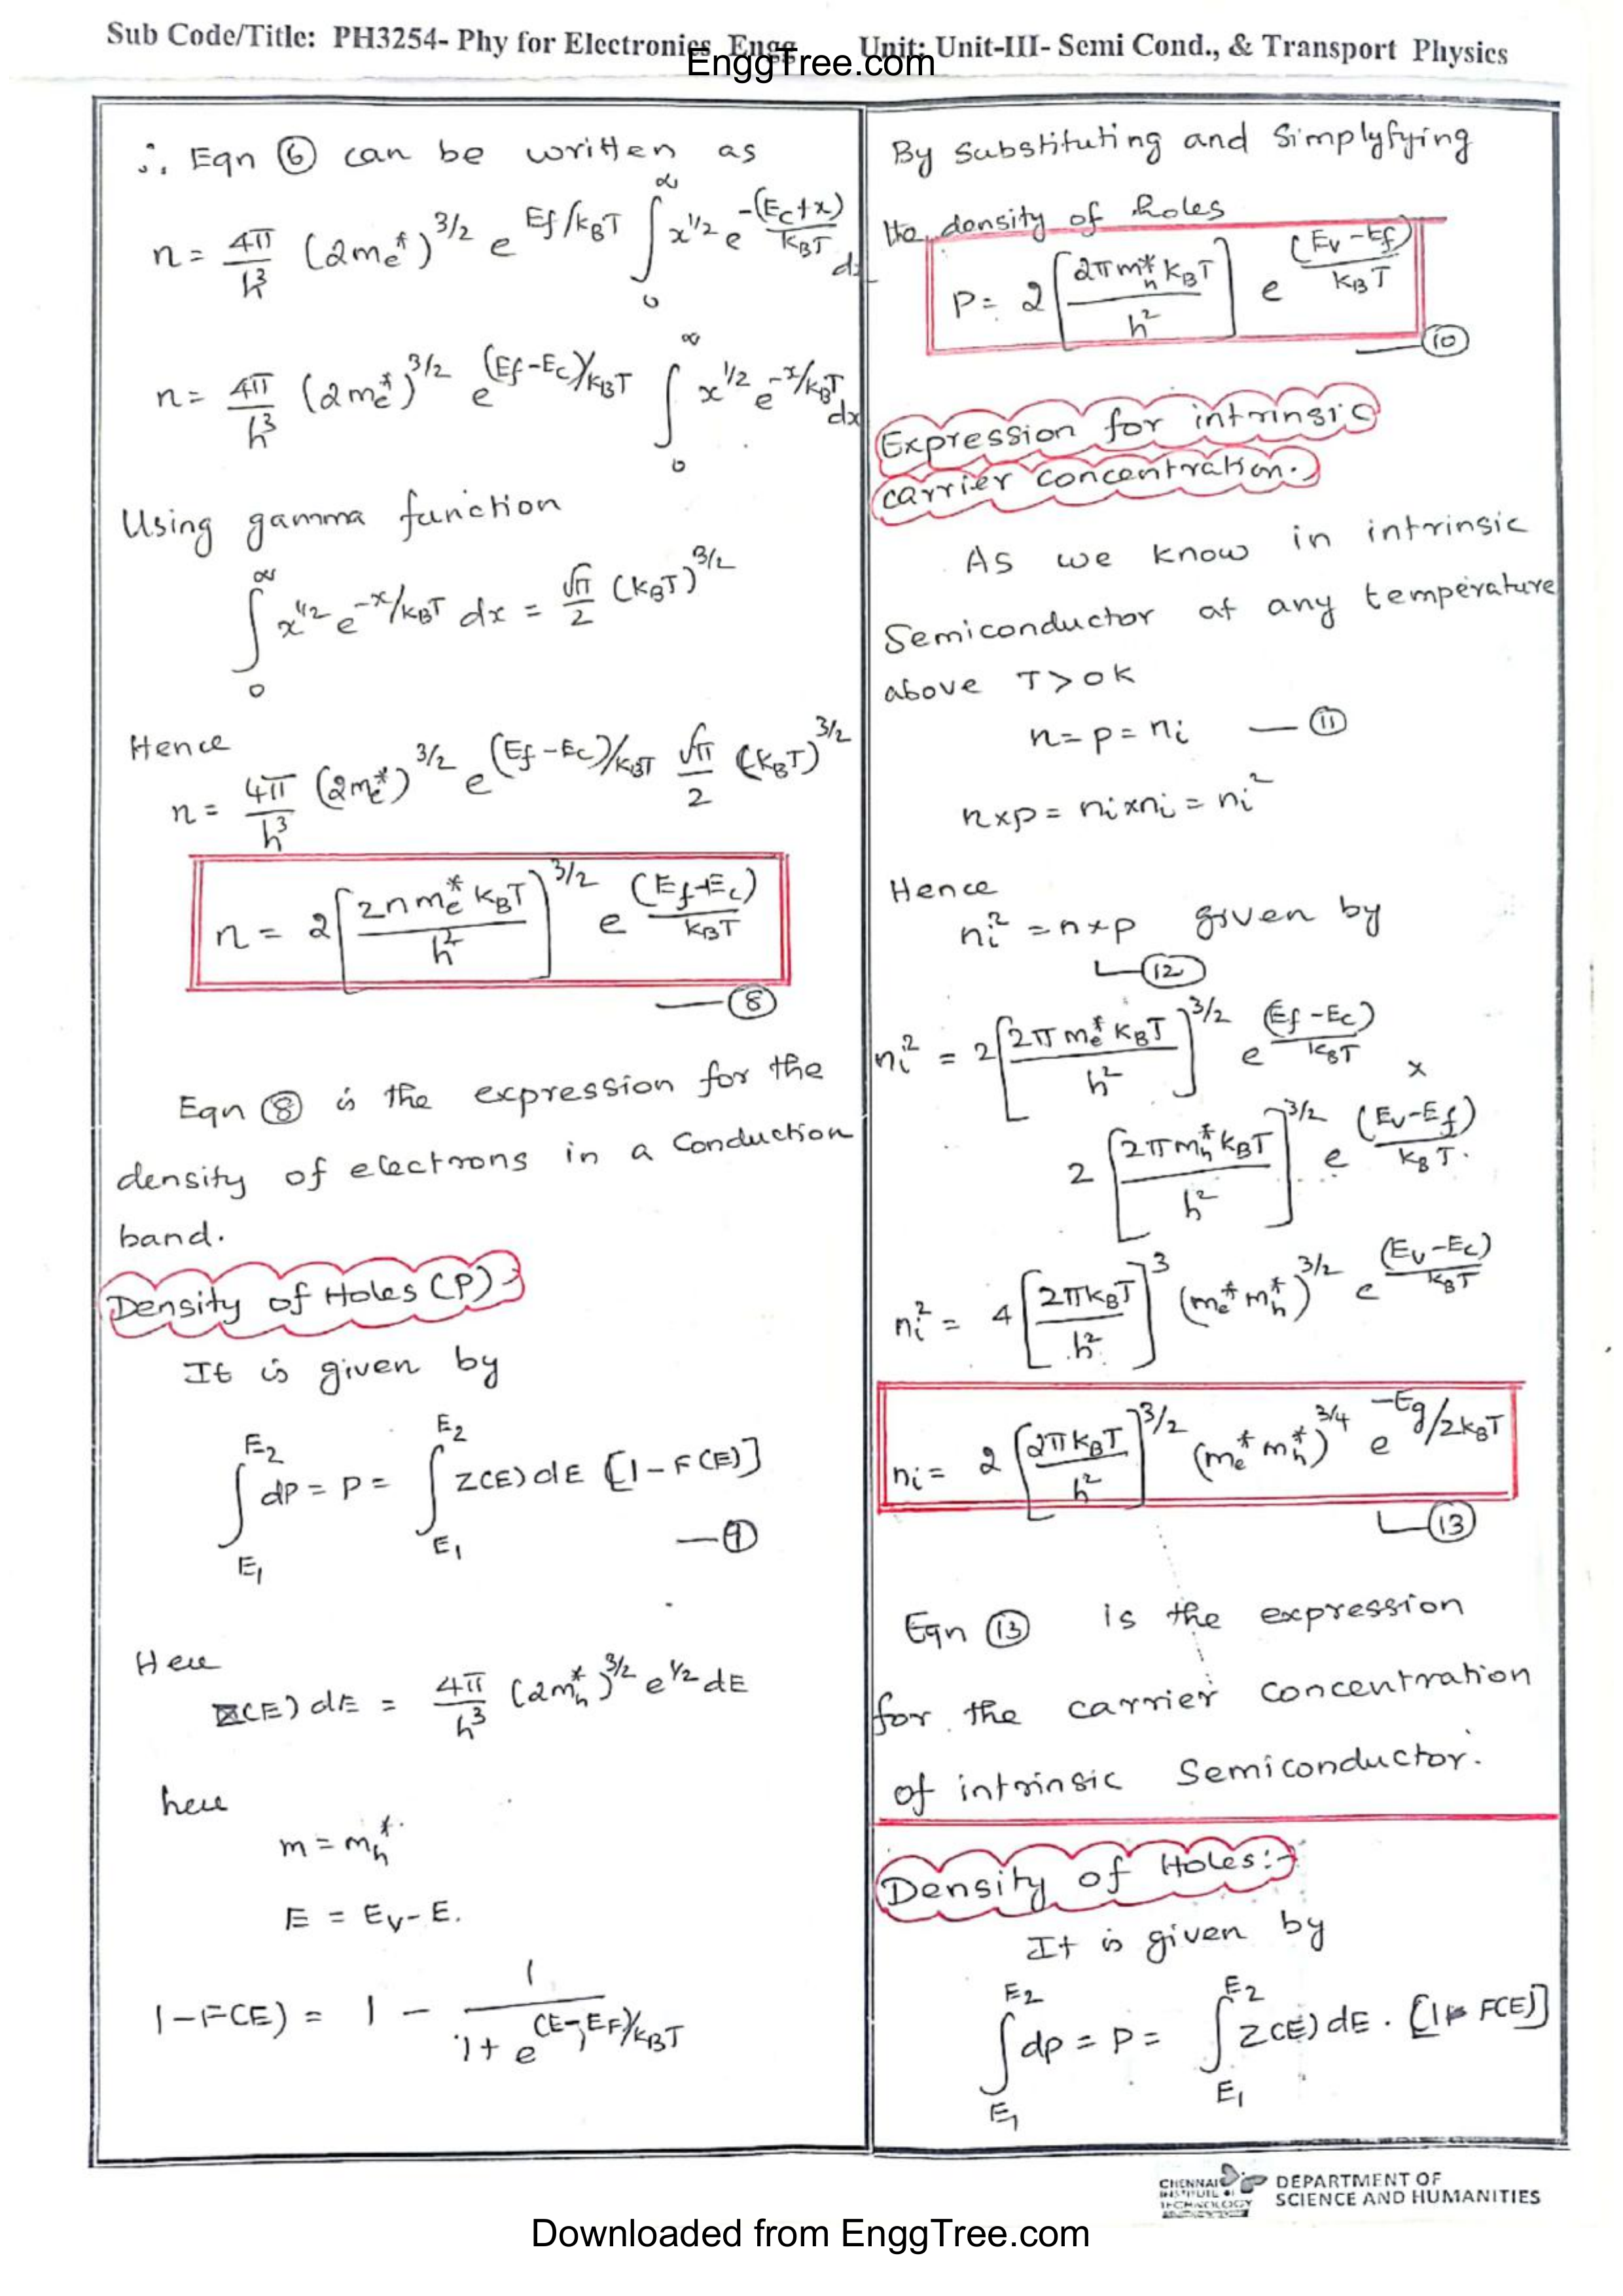 Sub Code/Title: PH3254- Phy for Electronics Engg Unit: Unit-III- Semi Cond., & Transport Physics
EnggTree.com
∴ Eqn ⑥ can be written as
n = 4π/h³ (2me*)^3/2 e^Ef/kBT ∫₀^∞ x^1/2 e^-(Ec+x)/kBT dx
n = 4π/h³ (2me*)^3/2 e^(Ef-Ec)/kBT ∫₀^∞ x^1/2 e^-x/kBT dx
Using gamma function
∫₀^∞ x^1/2 e^-x/kBT dx = √π/2 (kBT)^3/2
Hence
n = 4π/h³ (2me*)^3/2 e^(Ef-Ec)/kBT √π/2 (kBT)^3/2
n = 2[2πme* kBT/h²]^3/2 e^(Ef-Ec)/kBT — ⑧
Eqn ⑧ is the expression for the
density of electrons in a Conduction
band.
Density of Holes (P):-
It is given by
∫_E1^E2 dp = P = ∫_E1^E2 Z(E) dE [1-F(E)] — ⑨
Here
Z(E) dE = 4π/h³ (2mh*)^3/2 e^1/2 dE
here
m = mh*
E = Ev-E.
1-F(E) = 1 - 1/1+e^(E-EF)/kBT
By Substituting and Simplyfying
the density of holes
P = 2[2πmh* kBT/h²] e^(Ev-Ef)/kBT — ⑩
Expression for intrinsic
carrier concentration.
As we know in intrinsic
Semiconductor at any temperature
above T>0K
n = p = ni — ⑪
n×p = ni×ni = ni²
Hence
ni² = n×p given by
⑫
ni² = 2[2πme* kBT/h²]^3/2 e^(Ef-Ec)/kBT ×
2[2πmh* kBT/h²]^3/2 e^(Ev-Ef)/kBT.
ni² = 4[2πkBT/h²]^3 (me* mh*)^3/2 e^(Ev-Ec)/kBT
ni = 2[2πkBT/h²]^3/2 (me* mh*)^3/4 e^-Eg/2kBT
⑬
Eqn ⑬ is the expression
for the carrier concentration
of intrinsic Semiconductor.
Density of Holes:-
It is given by
∫_E1^E2 dp = P = ∫_E1^E2 Z(E) dE . [1-F(E)]
CHENNAI INSTITUTE OF TECHNOLOGY
DEPARTMENT OF
SCIENCE AND HUMANITIES
Downloaded from EnggTree.com